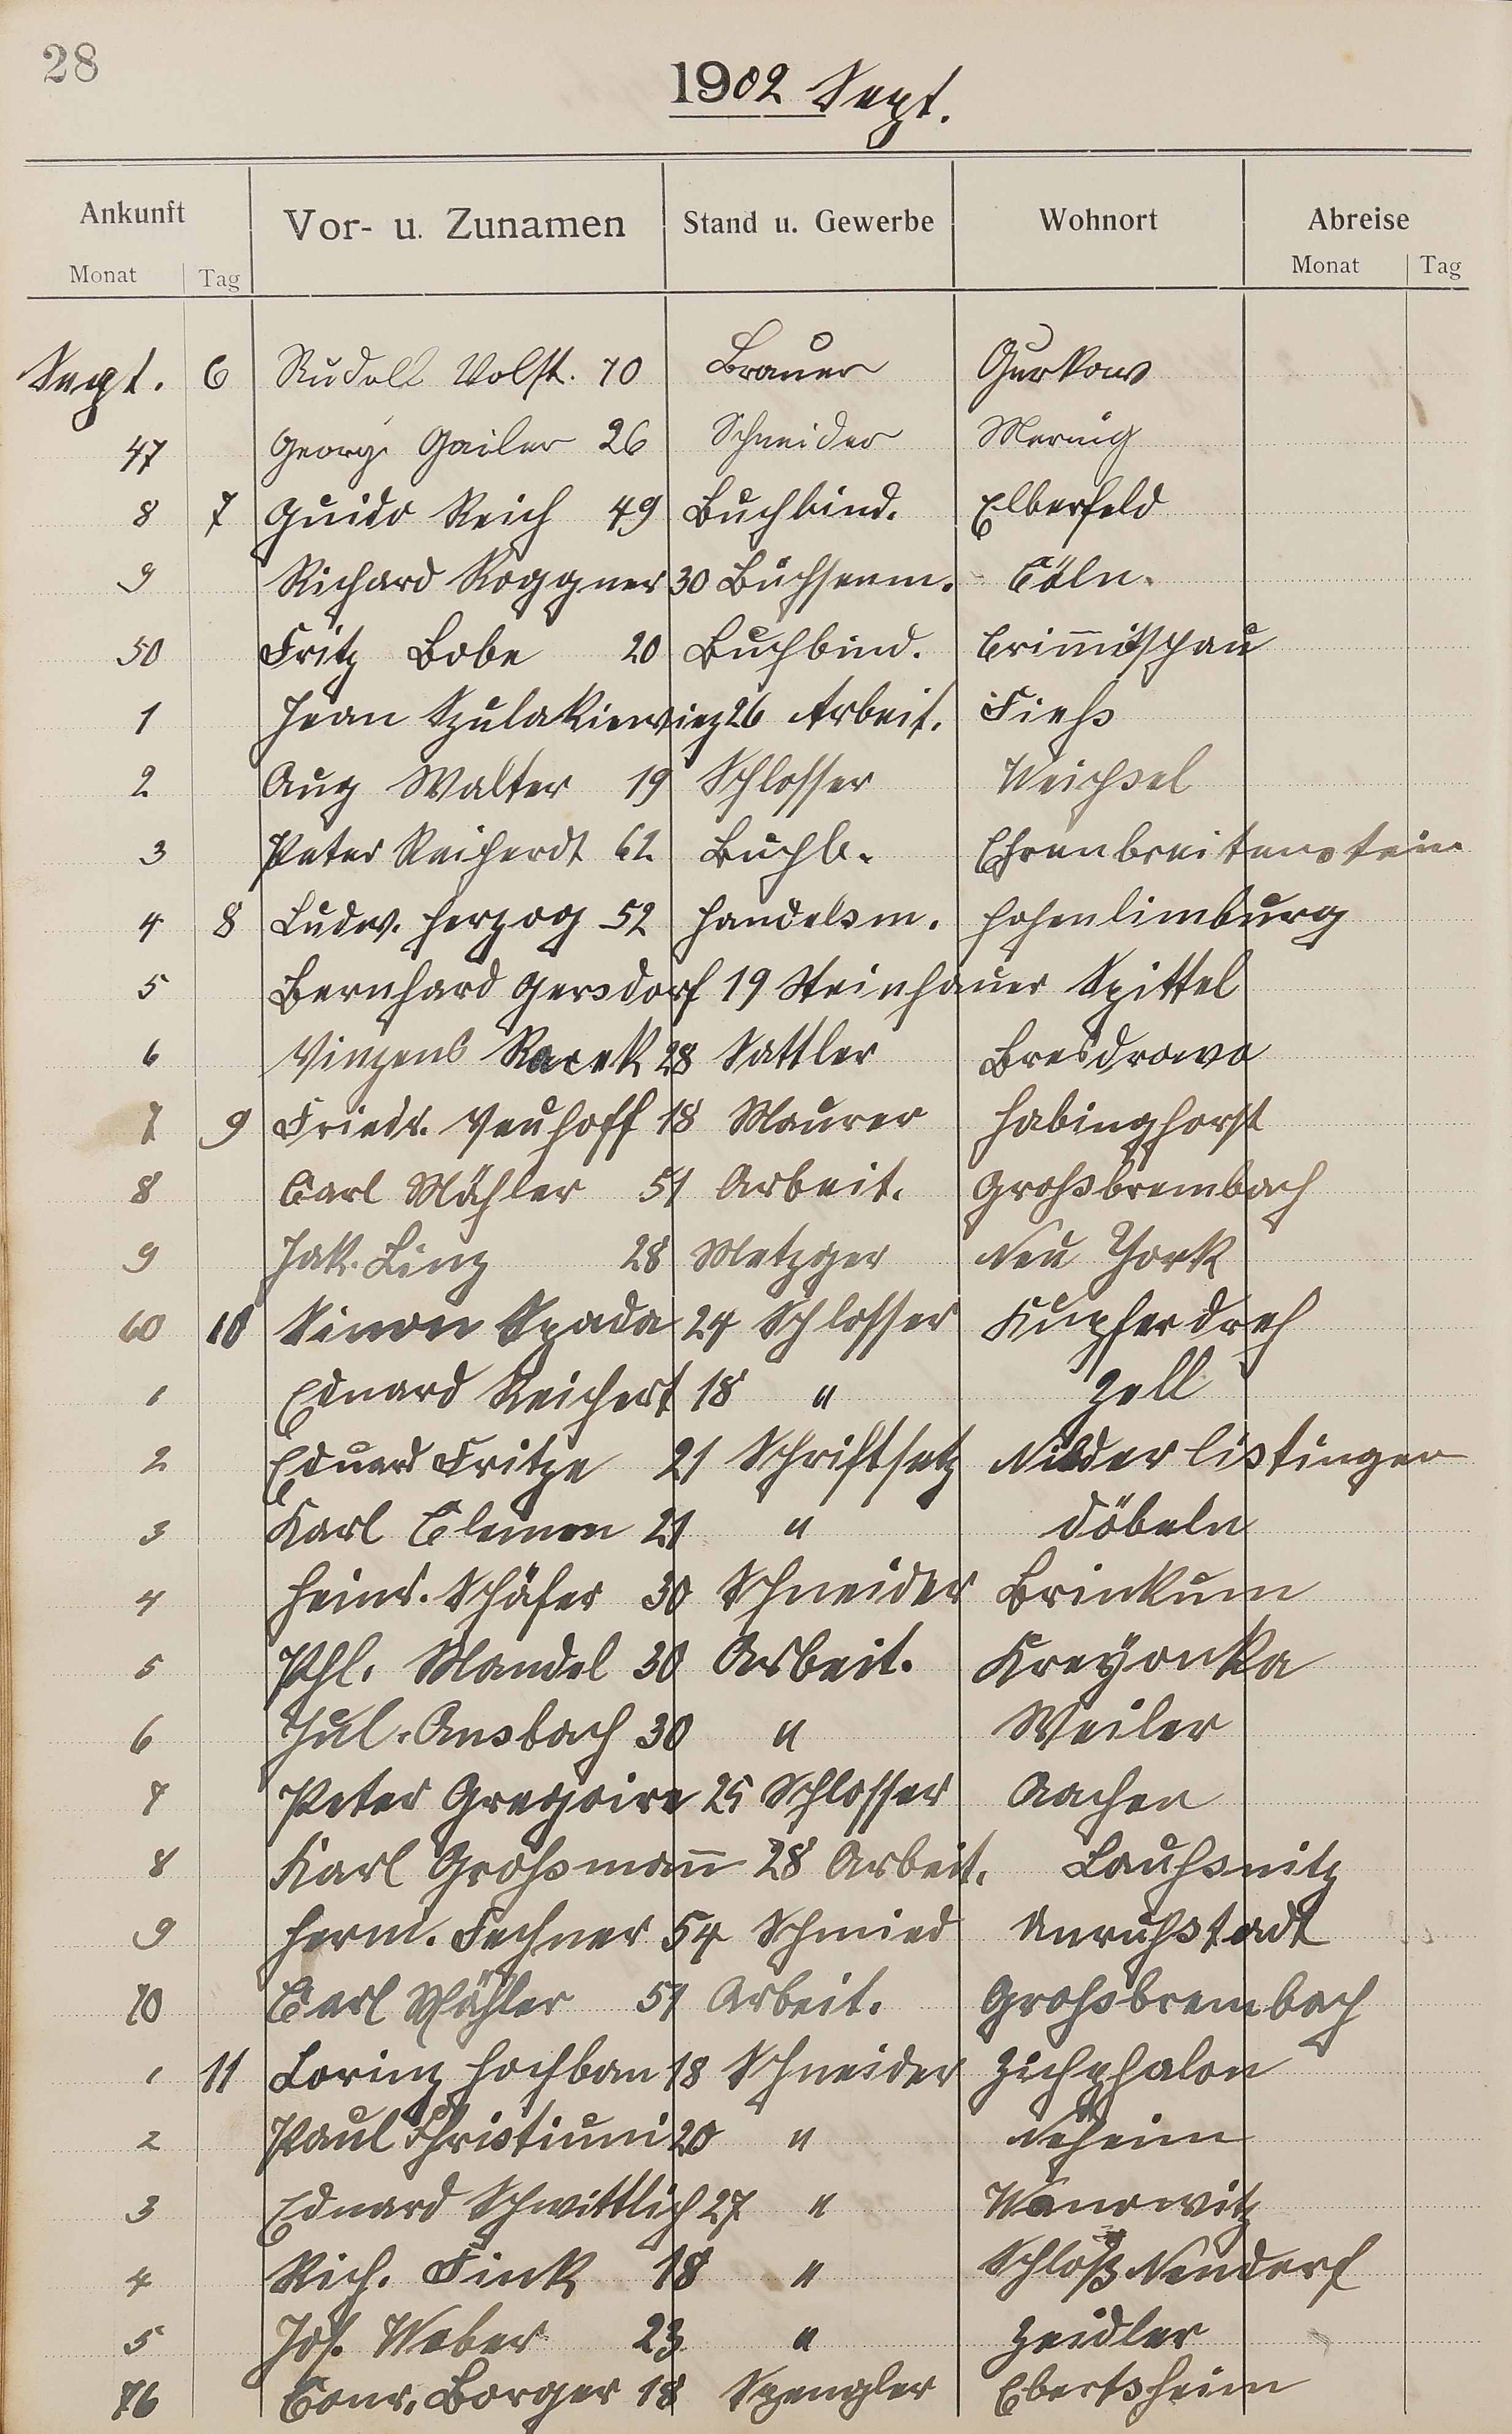 28
1902 Sept.
Ankunft Vor- u. Zunamen Stand u. Gewerbe Wohnort Abreise
Monat Tag Monat Tag
Sept. 6 Rudolf Volst. 70 Brauer Gurkow
47 Georg Gailer 26 Schneider Mernig
8 7 Guido Reich 49 Buchbind. Elberfeld
9 Richard Roggner 30 Büchsenm. Cöln.
50 Fritz Bobe 20 Buchbind. Crim̅itschau
1 Jean Szulakiewiez 26 Arbeit. Fiehs
2 Aug Walter 19 Schlosser Weichsel
3 Peter Reicherdt 62 Buchb. Ehrenbreitenstein
4 8 Ludw. Herzog 52 Handelsm. Hohenlimburg
5 Bernhard Gersdorf 19 Steinhauer Spittel
6 Vinzens Racek 28 Sattler Bresdrowa
7 9 Friedr. Neuhoff 18 Maurer Habinghorst
8 Carl Mähler 51 Arbeit. Grossbrembach
9 Jak. Linz 28 Metzger Neu York
60 10 Simon Spada 24 Schlosser Kupferdreh
1 Eduard Reichert 18 " Zell
2 Eduard Fritze 21 Schriftsetz Niederlistingen
3 Karl Clemen 21 " Döbeln
4 Heinr. Schäfer 30 Schneider Brinkum
5 Phl. Mandel 30 Arbeit. Kreyonka
6 Jul. Ansbach 30 " Weiler
7 Peter Gregoire 25 Schlosser Aachen
8 Karl Grossman̅ 28 Arbeit. Laussnitz
9 Herm. Fechner 54 Schmied Unruhstadt
70 Carl Mähler 51 Arbeit. Grossbrembach
1 11 Lorinz Hochban 18 Schneider
2 Paul Christiuni 20 " Neheim
3 Eduard Schwittlich 27 " Wanowitz
4 Rich. Fink 18 " Schloß Neudorf
5 Jos. Weber 23 " Zeidler
76 Conr. Borger 18 Spengler Ebertsheim